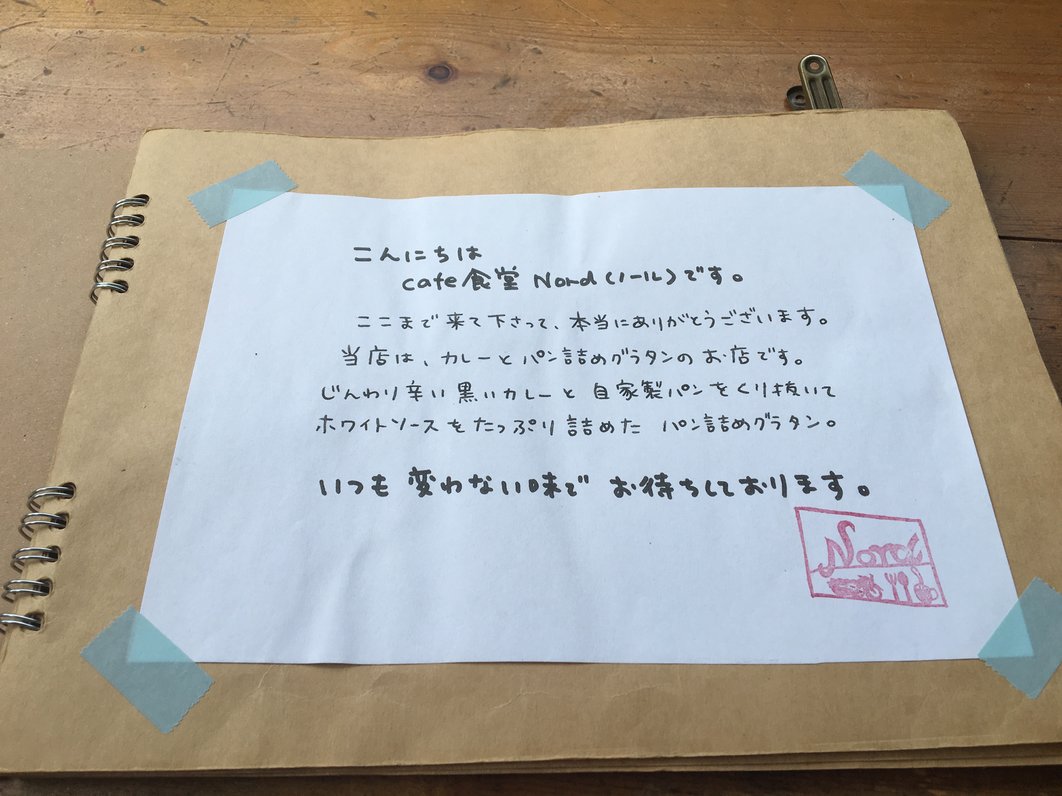 こんにちは
cafe食堂 Nord(ノール)です。
ここまで来て下さって、本当にありがとうございます。
当店は、カレーとパン詰めグラタンのお店です。
じんわり辛い黒いカレーと 自家製パンをくり抜いて
ホワイトソースをたっぷり詰めた パン詰めグラタン。
いつも変わない味で お待ちしております。
Nord